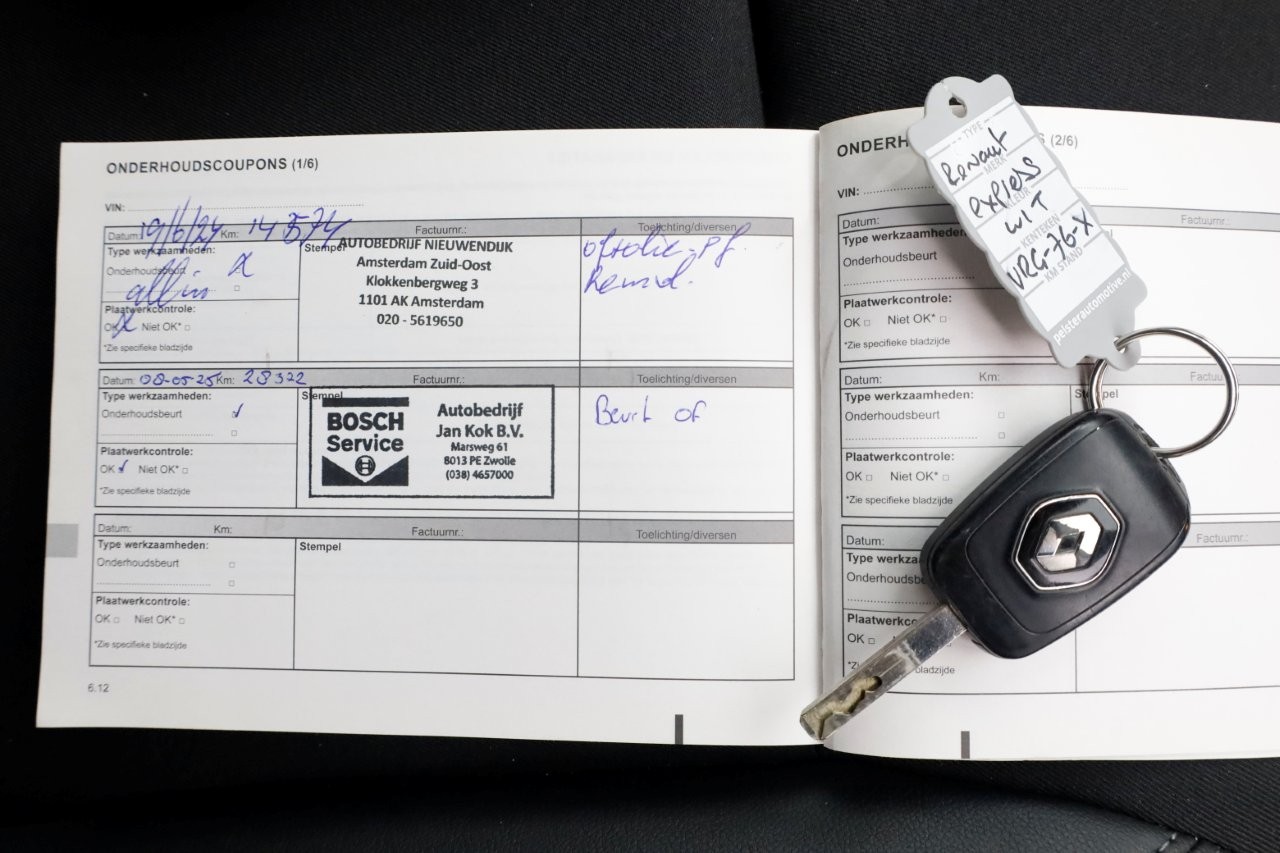 ONDERHOUDSCOUPONS (1/6)
VIN:
Datum: 19/6/24 Km: 14574 Factuurnr.: Toelichting/diversen
Type werkzaamheden:
Onderhoudsbeurt
Plaatwerkcontrole:
OK Niet OK*
*Zie specifieke bladzijde
Stempel
AUTOBEDRIJF NIEUWENDIJK
Amsterdam Zuid-Oost
Klokkenbergweg 3
1101 AK Amsterdam
020 - 5619650
Datum: 08-05-25 Km: 28322 Factuurnr.: Toelichting/diversen
Type werkzaamheden:
Onderhoudsbeurt
Plaatwerkcontrole:
OK Niet OK*
*Zie specifieke bladzijde
Stempel
BOSCH
Service
Autobedrijf
Jan Kok B.V.
Marsweg 61
8013 PE Zwolle
(038) 4657000
Beurt
Datum: Km: Factuurnr.: Toelichting/diversen
Type werkzaamheden:
Onderhoudsbeurt
Plaatwerkcontrole:
OK Niet OK*
*Zie specifieke bladzijde
Stempel
6.12
ONDERH S (2/6)
VIN:
Datum:
Type werkzaamheden:
Onderhoudsbeurt
Plaatwerkcontrole:
OK Niet OK*
*Zie specifieke bladzijde
Datum: Km: Factuu
Type werkzaamheden:
Onderhoudsbeurt
Plaatwerkcontrole:
OK Niet OK*
*Zie specifieke bladzijde
Datum: Factuurnr.:
Type werkza
Onderhoudsb
Plaatwerkco
OK
bladzijde
TYPE
Renault
MERK
express
KLEUR
WIT
KENTEKEN
VRG-76-X
KM STAND
pelsterautomotive.nl